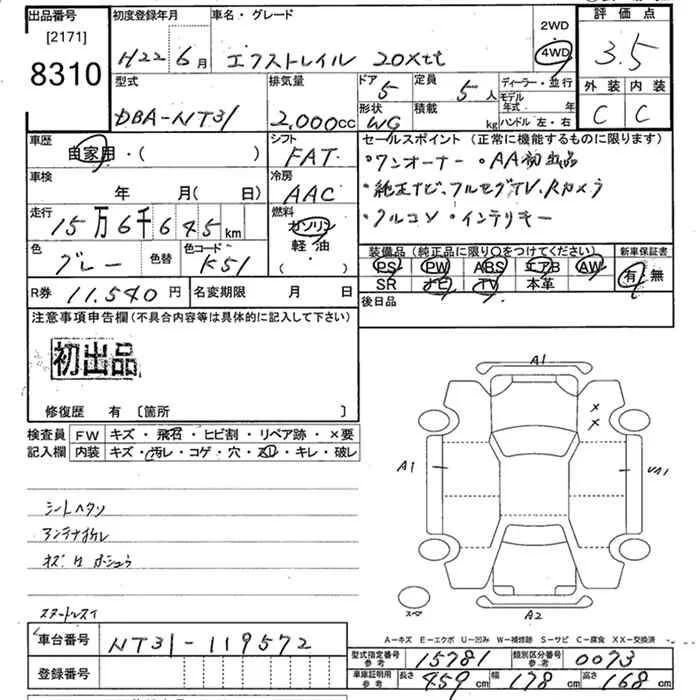 出品番号 初度登録年月 車名・グレード 2WD 評価点
[2171] 8310 H22年6月 エクストレイル 20Xtt 4WD 3.5
型式 排気量 ドア 5 定員 5人 ディーラー・並行 外装 内装
DBA-NT31 2,000cc 形状 WG 積載 kg モデル年式 年 ハンドル 左・右 C C
車歴 自家用・( ) シフト FAT セールスポイント(正常に機能するものに限ります)
車検 年 月( 日) 冷房 AAC ・ワンオーナー ・AA初出品
走行 15万6千645km 燃料 ガソリン 軽油 ( ) ・純正ナビ、フルセグTV、Rカメラ
色 グレー 色替 色コード K51 ・クルコン ・インテリキー
装備品(純正品に限り○をつけてください) 新車保証書
PS PW ABS エアB AW 有・無
SR ナビ TV 本革
R券 11.540円 名変期限 月 日 後日品
注意事項申告欄(不具合内容等は具体的に記入して下さい)
初出品
修復歴 有 [箇所 ]
検査員記入欄 FW キズ・飛石・ヒビ割・リペア跡・×要
内装 キズ・汚レ・コゲ・穴・スレ・キレ・破レ
A1
A1
A1
A2
シートヘタリ
アンテナオレ
スペア
A−キズ E−エクボ U−凹み W−補修跡 S−サビ C−腐食 XX−交換済
車台番号 NT31-119572
型式指定番号 参考 15781 類別区分番号 参考 0073
登録番号
車車証明用 参考 長さ 459cm 幅 178cm 高さ 168cm